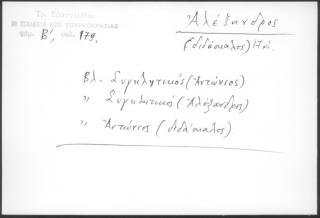 Τρ. Εὐαγγελίδου
Η ΠΑΙΔΕΙΑ ΕΠΙ ΤΟΥΡΚΟΚΡΑΤΙΑΣ
τόμ. Β', σελ. 179.
Ἀλέξανδρος
(διδάσκαλος)
Βλ. Συγκλητικός (Ἀντώνιος)
" Συγκλητικός (Ἀλέξανδρος)
" Ἀντώνιος (διδάσκαλος).